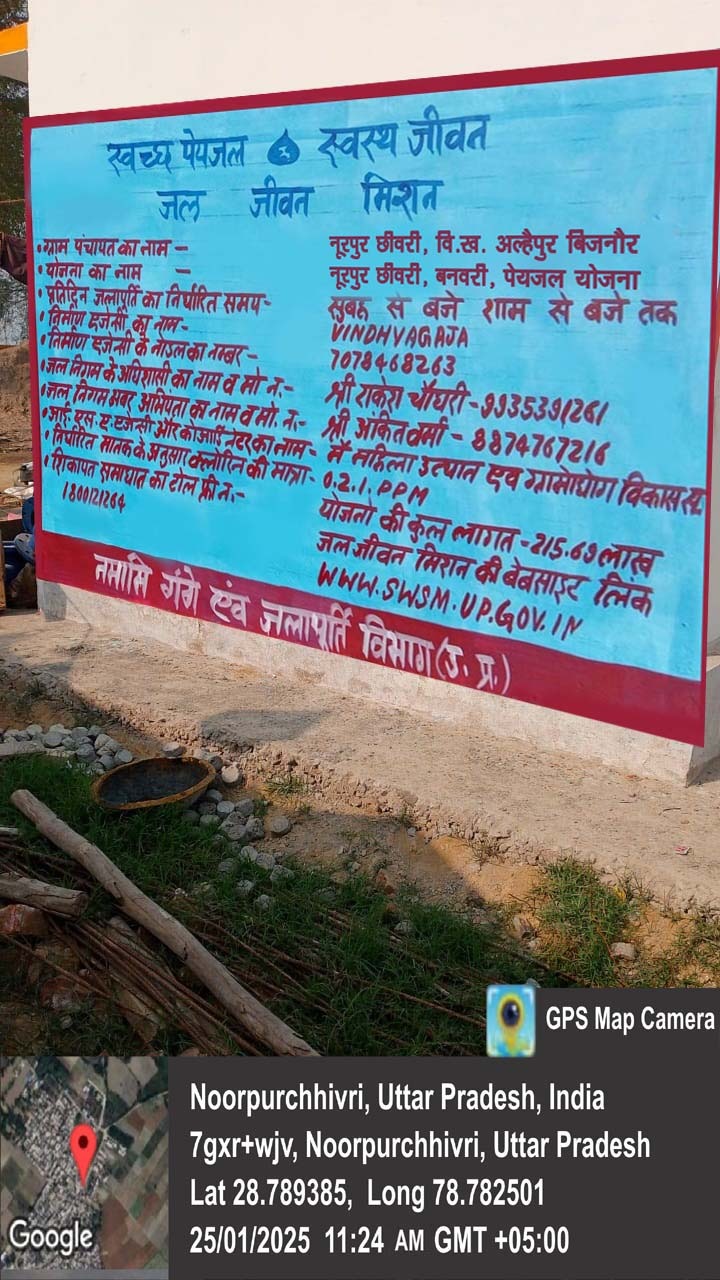 स्वच्छ पेयजल स्वस्थ जीवन
जल जीवन मिशन
• ग्राम पंचायत का नाम – नूरपुर छीवरी, वि.ख. अल्हैपुर बिजनौर
• योजना का नाम – नूरपुर छीवरी, बनवरी, पेयजल योजना
• प्रतिदिन जलापूर्ति का निर्धारित समय- सुबह से बजे शाम से बजे तक
• निर्माण एजेंसी का नाम- VINDHYAGAJA
• निर्माण एजेंसी के नोडल का नम्बर- 7078468263
• जल निगम के अधिशासी का नाम व मो न.- श्री राकेश चौधरी-9935391261
• जल निगम अवर अभियंता का नाम व मो. न.- श्री अंकित वर्मा - 8874767216
• आई. एस. ए. एजेन्सी और कोआर्डिनेटर का नाम- मैं महिला उत्थान एवं ग्रामोद्योग विकास स
• निर्धारित मानक के अनुसार क्लोरिन की मात्रा- 0.2.1. PPM
• शिकायत समाधान का टोल फ्री न.- योजना की कुल लागत-215.69 लाख
1800121264 जल जीवन मिशन की बेबसाइट लिंक
WWW.SWSM.UP.GOV.IN
नमामि गंगे एंव जलापूर्ति विभाग (उ. प्र.)
GPS Map Camera
Noorpurchhivri, Uttar Pradesh, India
7gxr+wjv, Noorpurchhivri, Uttar Pradesh
Lat 28.789385, Long 78.782501
25/01/2025 11:24 AM GMT +05:00
Google